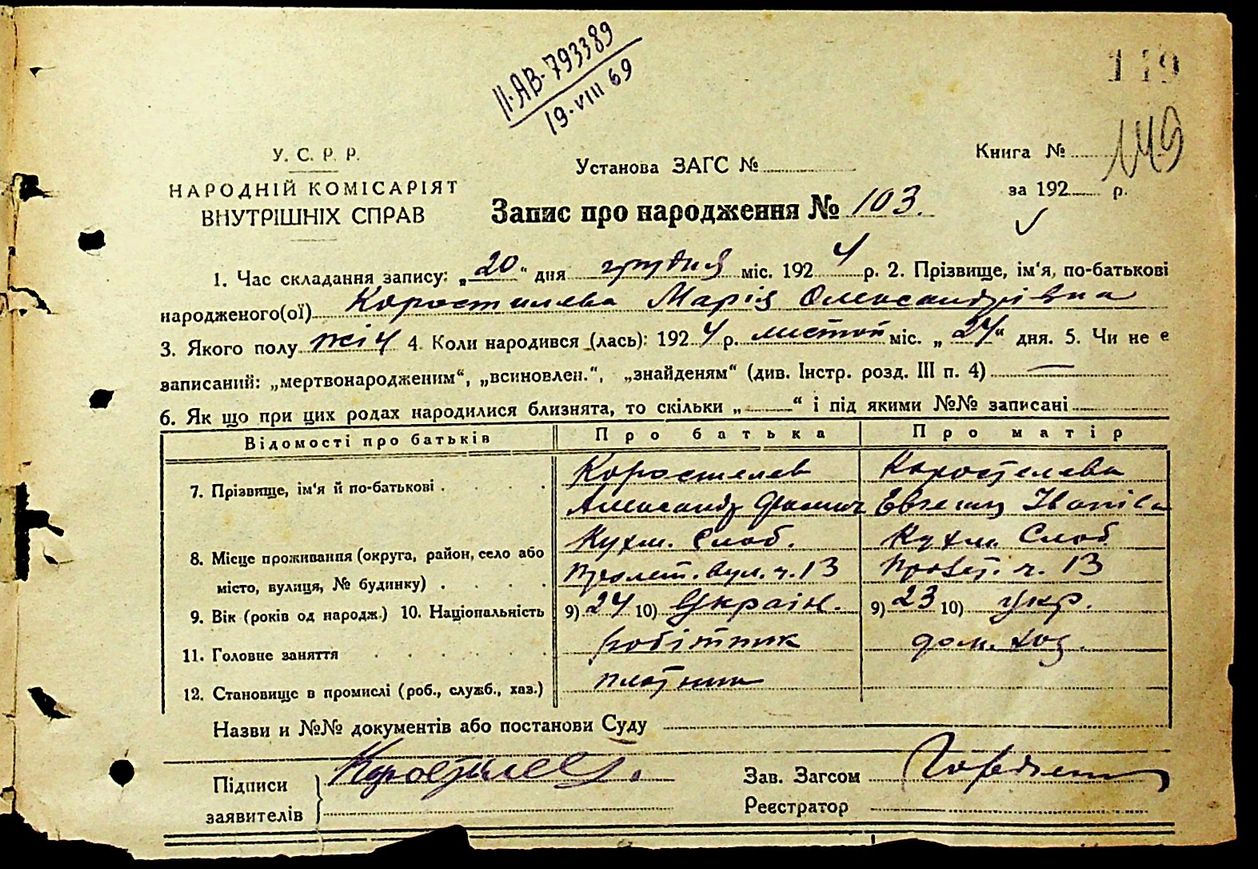 II-АВ-793389
19-VIII 69
119
149
У. С. Р. Р.
НАРОДНІЙ КОМІСАРІЯТ
ВНУТРІШНІХ СПРАВ
Установа ЗАГС №
Книга №
за 192 р.
Запис про народження № 103.
1. Час складання запису: „20" дня грудня міс. 1924 р. 2. Прізвище, ім'я, по-батькові
народженого(ої) Коростилева Марія Олександрівна
3. Якого полу жіч 4. Коли народився (лась): 1924 р. листоп міс. „24" дня. 5. Чи не є
записаний: „мертвонародженим", „всиновлен.", „знайденям" (див. Інстр. розд. III п. 4) —
6. Як що при цих родах народилися близнята, то скільки „ " і під якими №№ записані
Відомості про батьків Про батька Про матір
7. Прізвище, ім'я й по-батькові Коростелев Коростелева
Александр Евгения Іванівна
8. Місце проживання (округа, район, село або Кухм. Слоб. Кухм. Слоб
місто, вулиця, № будинку) Пролет. вул. ч. 13 Пролет. ч. 13
9. Вік (років од народж.) 10. Національність 9) 24 10) Україн. 9) 23 10) укр.
11. Головне заняття робітник дом. хоз.
12. Становище в промислі (роб., служб., хаз.) плотник
Назви и №№ документів або постанови Суду
Підписи Коростилев Зав. Загсом
заявителів Реєстратор